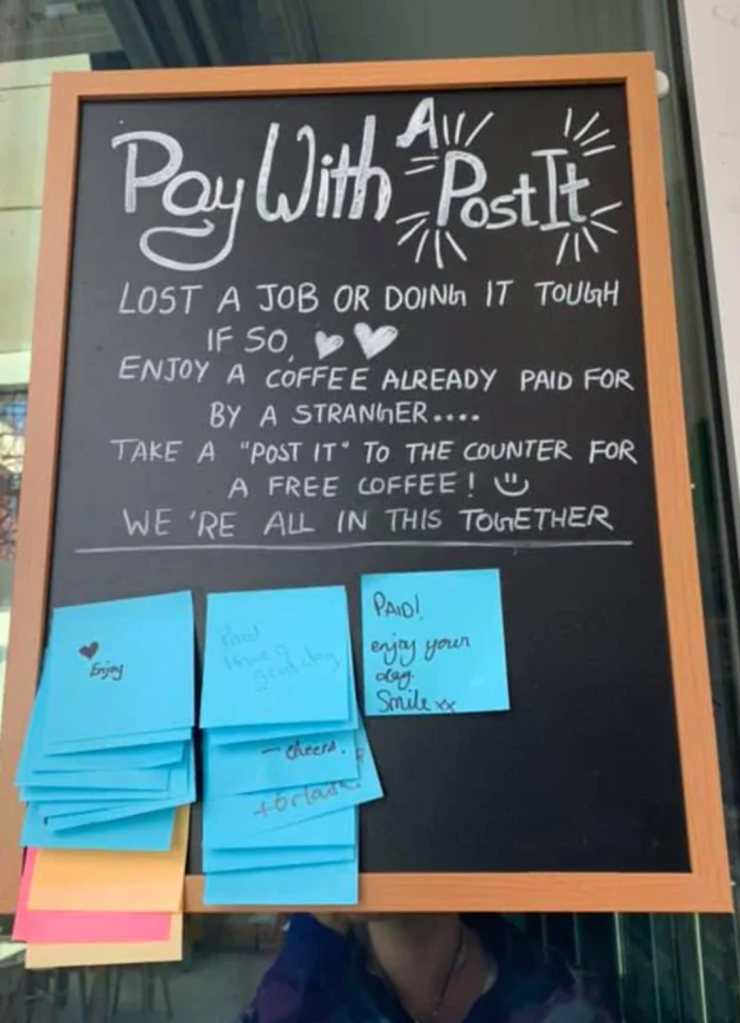 Pay With A Post It
LOST A JOB OR DOING IT TOUGH
IF SO,
ENJOY A COFFEE ALREADY PAID FOR
BY A STRANGER....
TAKE A "POST IT" TO THE COUNTER FOR
A FREE COFFEE!
WE'RE ALL IN THIS TOGETHER
Enjoy
Paid
have a
great day
- cheers.
PAID!
enjoy your
day.
Smile xx